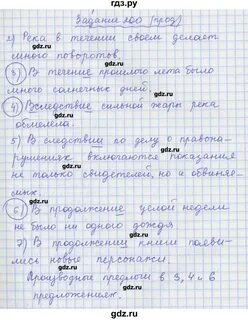 гдз.ру
Задание 200 (прод)
2) Река в течении своём делает
много поворотов.
3) В течение прошлого лета было
много солнечных дней.
4) Вследствие сильной жары река
обмелела.
5) В следствии по делу о правона-
рушениях включаются показания
не только свидетелей, но и обвиня-
емых.
6) В продолжение целой недели
не было ни одного дождя.
7) В продолжении книги появи-
лись новые персонажи.
Производные предлоги в 3, 4 и 6
предложениях.